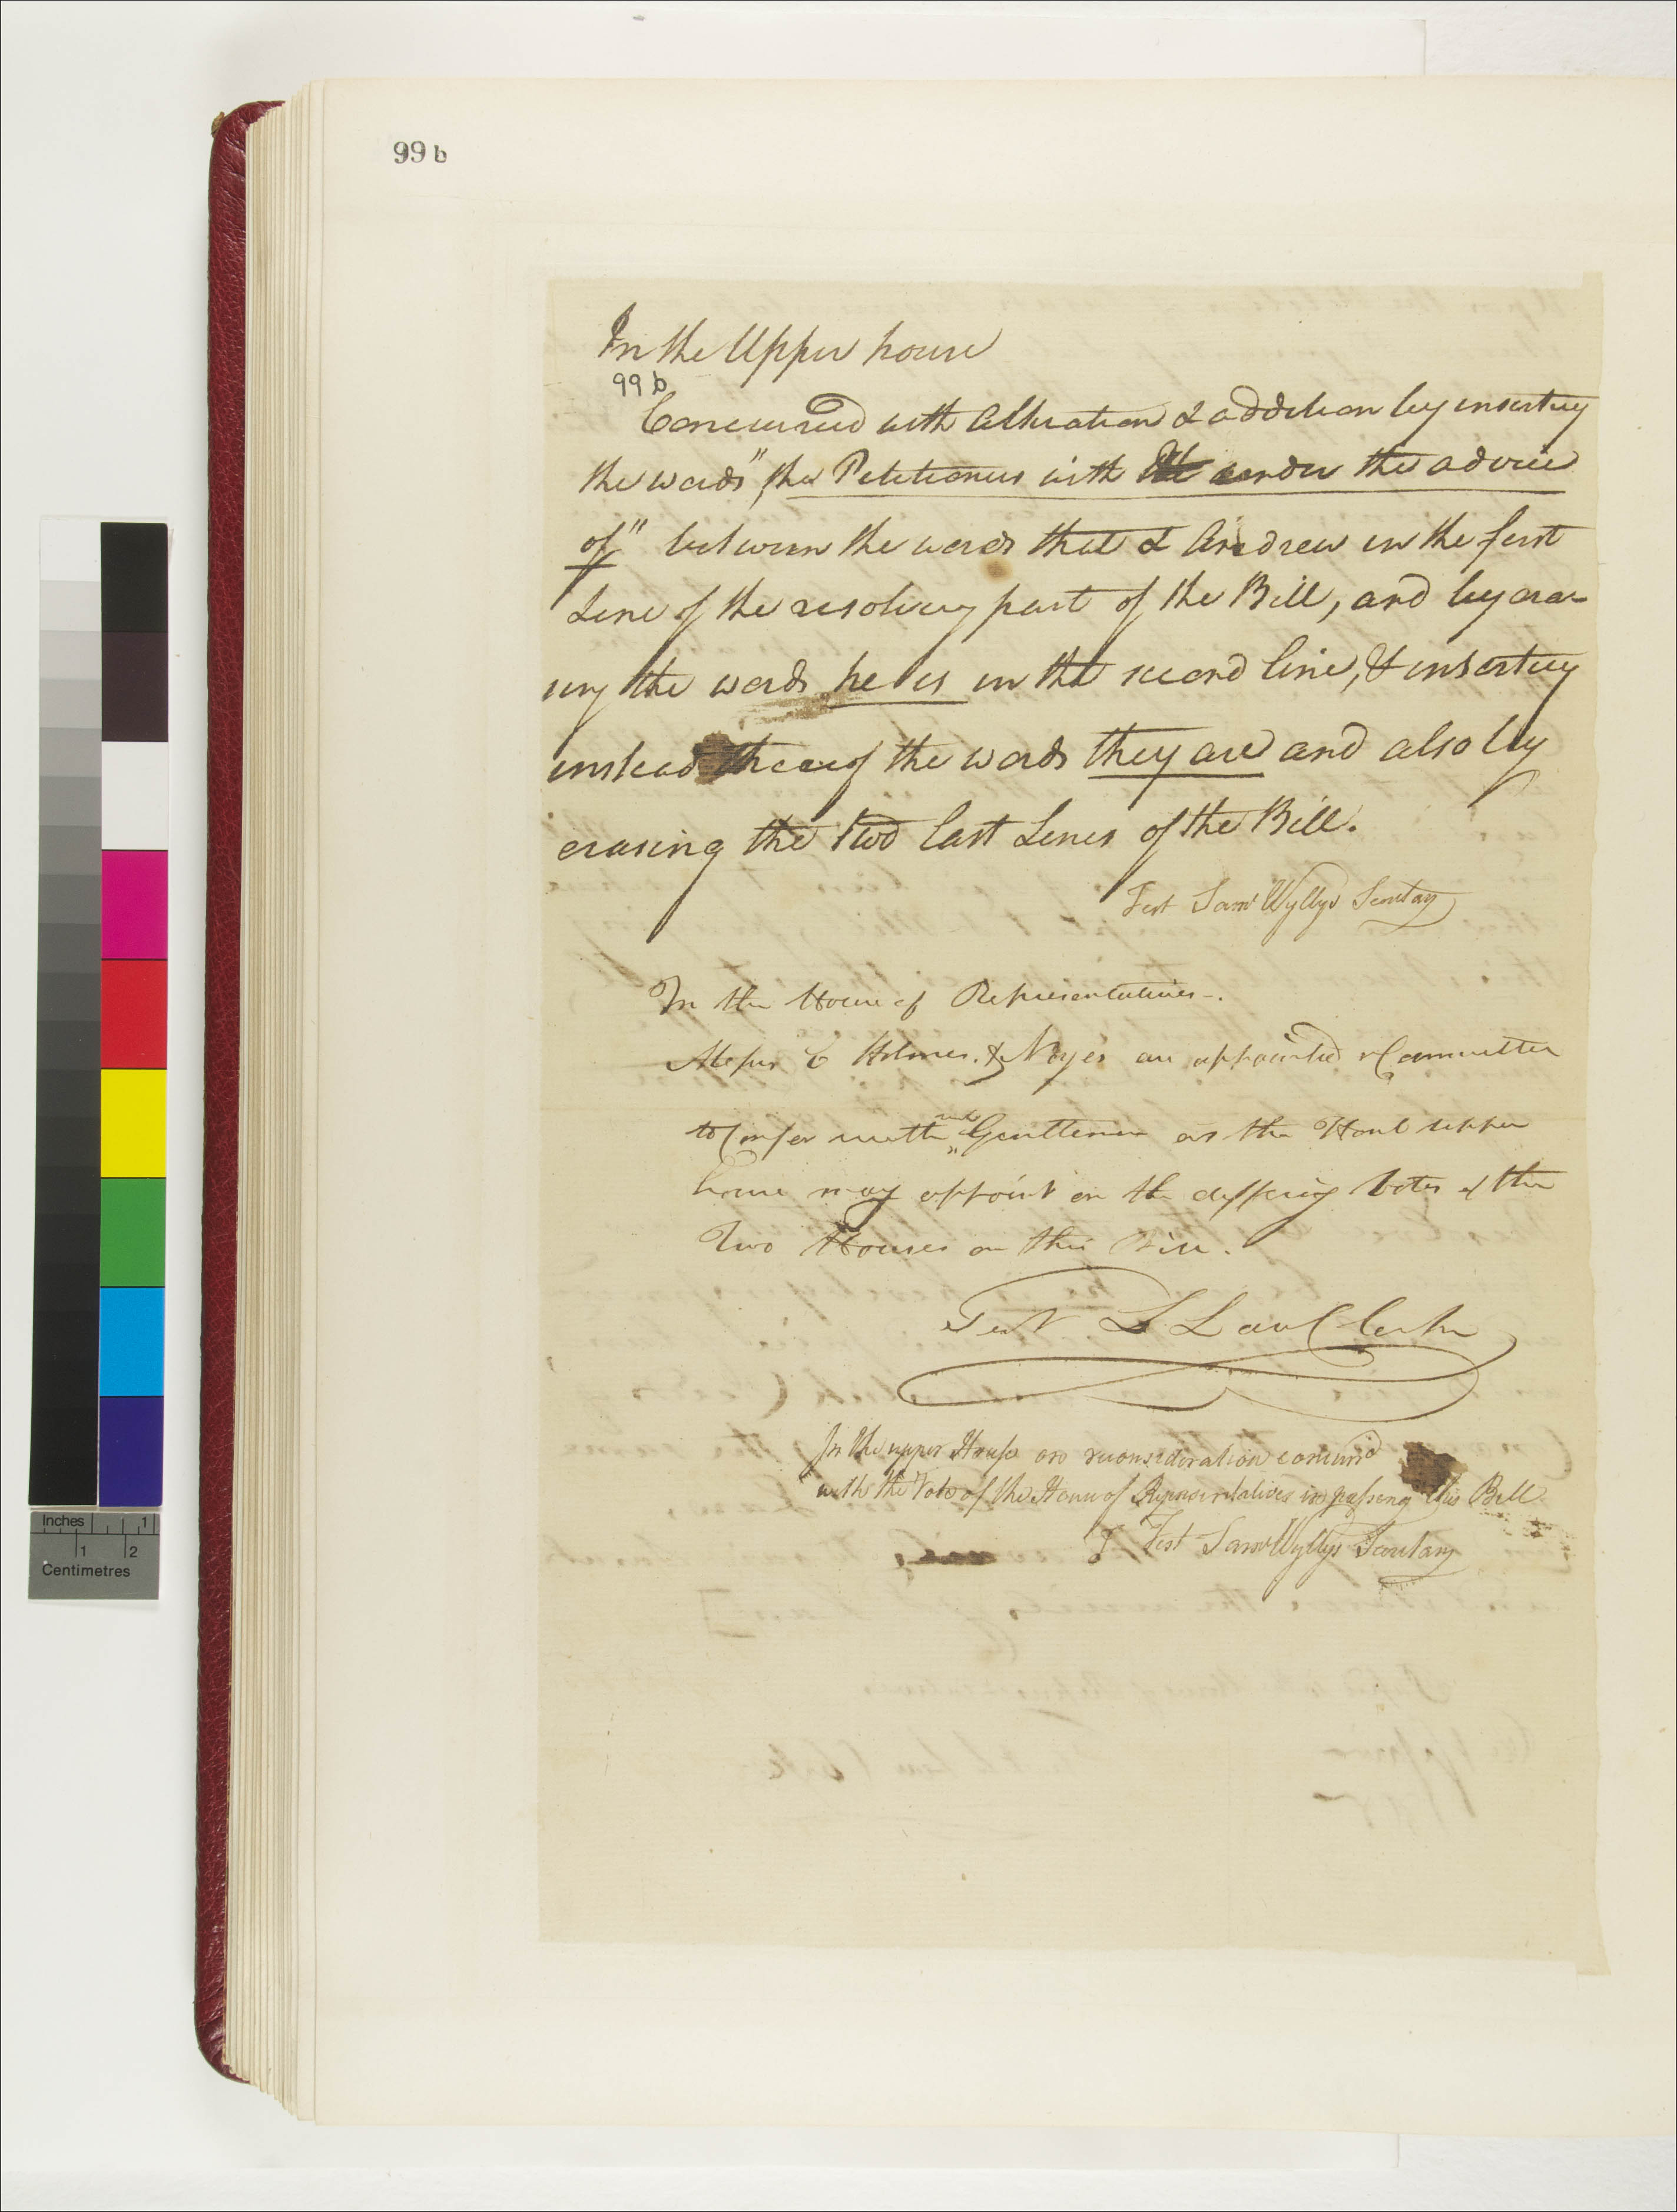 99 b
In the Upper house
99 b
Concurred with Alteration & addition by inserting
the words "the Petitioners with under the advice
of" between the words that & Andrew in the first
Line of the resolving part of the Bill, and by era-
sing the words he is in the second line, & inserting
instead thereof the words they are and also by
erasing the two last Lines of the Bill.
Test Saml Wyllys Secretary
In the House of Representatives-.
Messrs C Holmes. & Noyes are appointed a Committee
to Confer with such Gentlemen as the Honl upper
house may appoint on the differing Votes of the
Two Houses on this Bill.
Test L Law Clerk
In the upper House on reconsideration concurrd
with the Vote of the House of Representatives in passing this Bill
Test Saml Wyllys Secretary
Inches 1
1 2
Centimetres